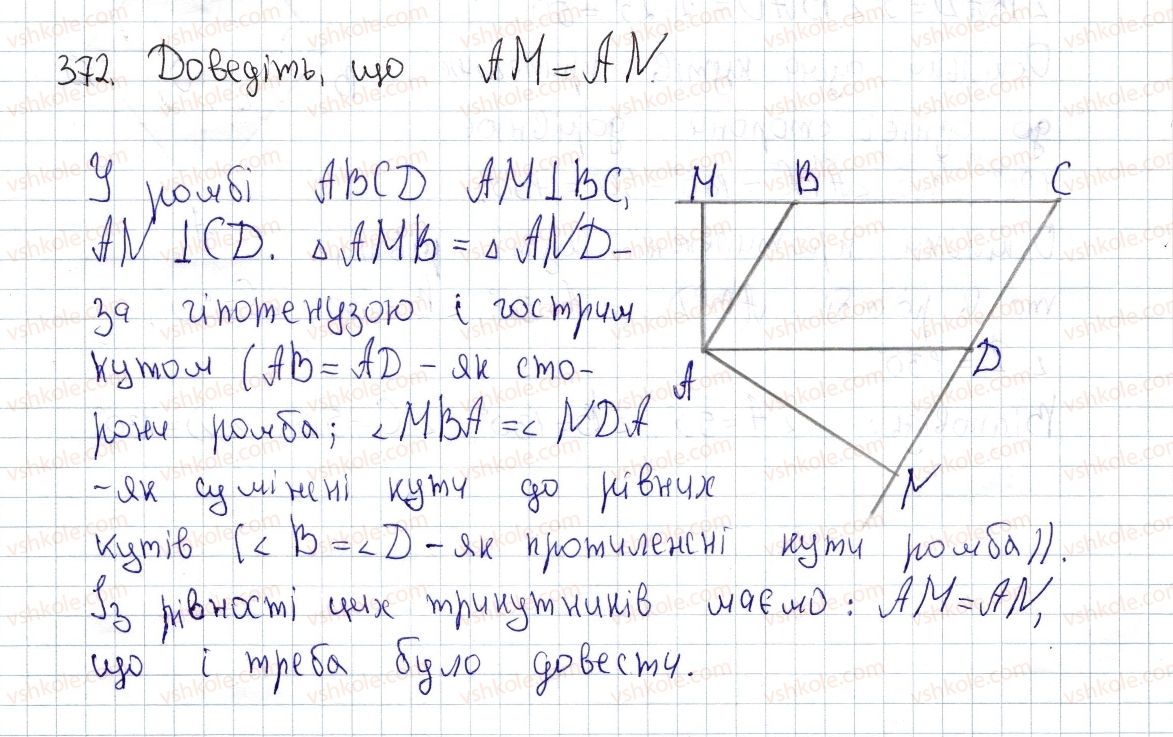 372. Доведіть, що AM = AN.
У ромбі ABCD AM⊥BC,
AN⊥CD. △AMB = △AND –
за гіпотенузою і гострим
кутом (AB = AD – як сто-
рони ромба; ∠MBA = ∠NDA
– як суміжні кути до рівних
кутів (∠B = ∠D – як протилежні кути ромба)).
Із рівності цих трикутників маємо: AM = AN,
що і треба було довести.
M B C
A D
N